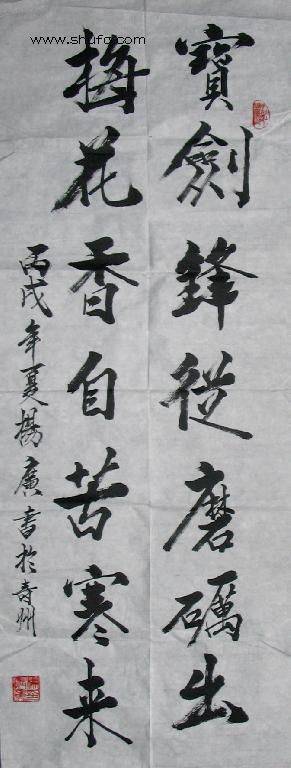 寶劍鋒從磨礪出
梅花香自苦寒来
丙戌年夏楊廣书於寿州
www.shufa.com